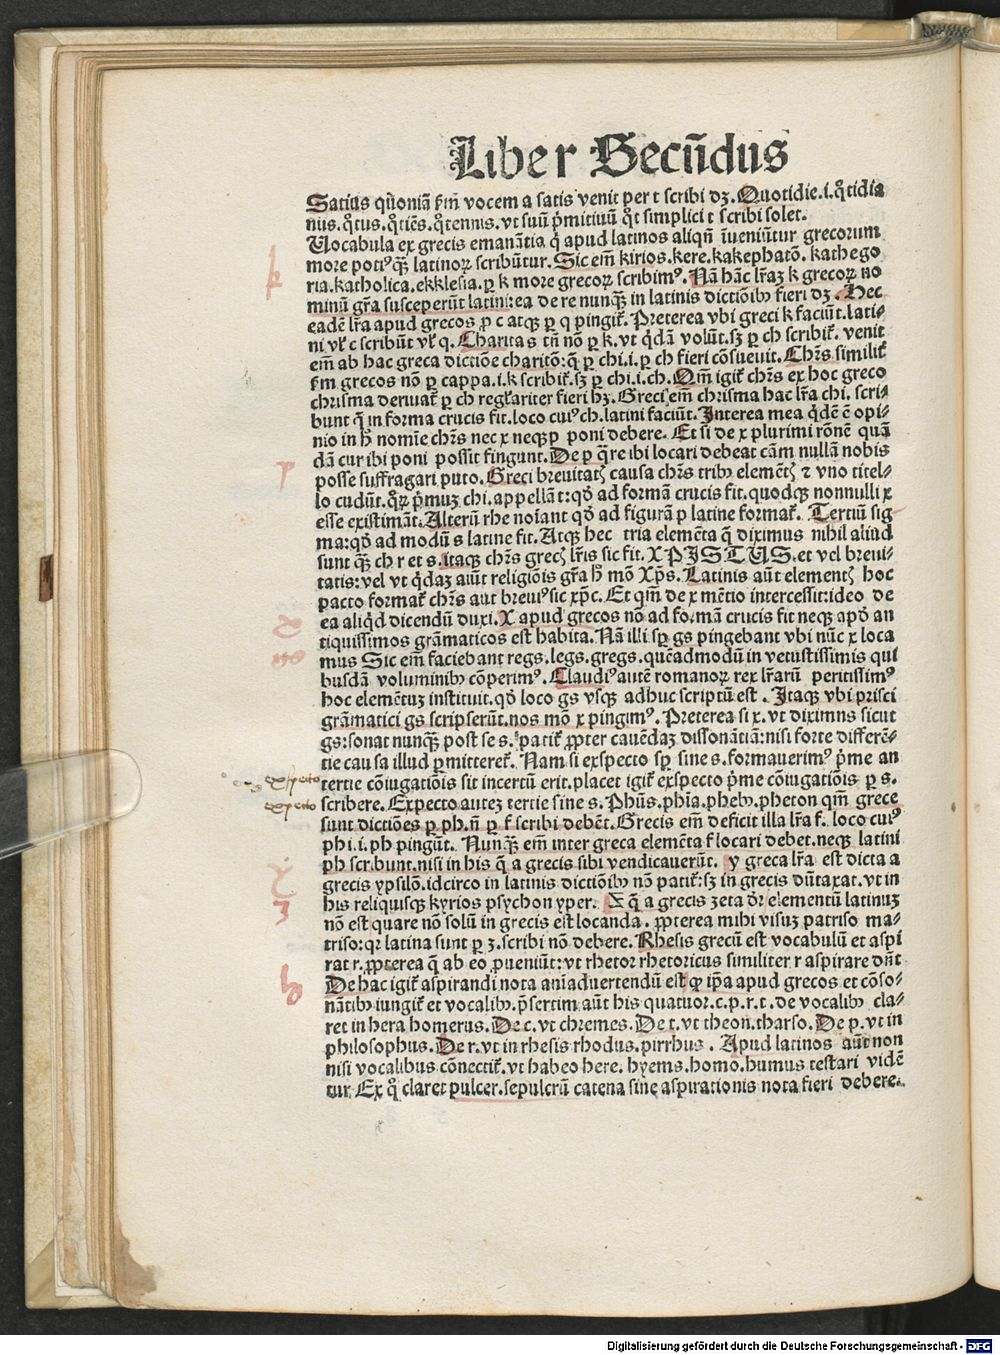 Liber Secūdus
Satius qm̄oniā ẜm vocem a satis venit per t scribi dꝫ. Quotidie .i. qͦtidia
nus. qͦtus. qͦtiēs. qͦtennis. vt suū ṗmitiuū qͦt simplici t scribi solet.
Uocabula ex grecis emanātia q̄ apud latinos aliqñ īueniūtur grecorum
more potiꝰ qꝫ̄ latinoꝝ scribūtur. Sic em̄ kirios. kere. kakephatō. kathego
ria. katholica. ekklesia. ꝑ k more grecoꝝ scribimꝰ. Nā hāc lr̄aꝫ k grecoꝝ no
minū gr̄a susceperūt latini: ea de re nunqꝫ̄ in latinis dictiōibꝰ fieri dꝫ. Hec
eadē lr̄a apud grecos ꝓ c atqꝫ ꝑ q pingit᷑. Preterea vbi greci k faciūt. lati-
ni vl̓ c scribūt vl̓ q. Charitas tn̄ nō ꝑ k. vt qͥdā volūt. sꝫ ꝑ ch scribit᷑. venit
em̄ ab hac greca dictiōe charitō: q̄ ꝑ chi .i. ꝑ ch fieri cōsueuit. Chr̄s similit᷑
ẜm grecos nō ꝑ cappa .i. k scribit᷑. sꝫ ꝑ chi .i. ch. Qm̄ igit᷑ chr̄s ex hoc greco
chrisma deriuat᷑ ꝑ ch regl̓ariter fieri hꝫ. Greci em̄ chrisma hac lr̄a chi. scri-
bunt q̄ in forma crucis fit. loco cuiꝰ ch. latini faciūt. Interea mea qͥdē ē opi-
nio in hͦ nomīe chr̄s nec x neqꝫ p poni debere. Et si de x plurimi rōnē quā
dā cur ibi poni possit fingunt. De p q̄re ibi locari debeat cām nullā nobis
posse suffragari puto. Greci breuitatꝭ causa chr̄s tribꝰ elemētꝭ ⁊ vno titel-
lo cudūt. qͦꝝ ṗmuꝫ chi. appellāt: qꝺ̓ ad formā crucis fit. quodqꝫ nonnulli x
esse existimāt. Alterū rhe noīant qꝺ̓ ad figurā p latine format᷑. Tertiū sig
ma: qꝺ̓ ad modū s latine fit. Atqꝫ hec tria elemēta q̄ diximus nihil aliud
sunt qꝫ̄ ch r et s. itaqꝫ chr̄s grecꝭ lr̄is sic fit. XPISTUS. et vel breui-
tatis: vel vt qͥdaꝫ aiūt religiōis gr̄a hͦ mō Xp̄s. Latinis aūt elementꝭ hoc
pacto format᷑ chr̄s aut breuiꝰ sic xp̄c. Et qm̄ de x mētio intercessit: ideo de
ea aliqͥd dicendū duxi. X apud grecos nō ad formā crucis fit neqꝫ apꝺ̓ an
tiquissimos grāmaticos est habita. Nā illi sꝑ gs pingebant vbi nūc x loca
mus Sic em̄ faciebant regs. legs. gregs. quēadmodū in vetustissimis qui
busdā voluminibꝰ cōperimꝰ. Claudiꝰ autē romanoꝝ rex lr̄arū peritissimꝰ
hoc elemētuꝫ instituit. qꝺ̓ loco gs vsqꝫ adhuc scriptū est. Itaqꝫ vbi prisci
grāmatici gs scripserūt. nos mō x pingimꝰ. Preterea si x. vt diximus sicut
gs: sonat nunqꝫ̄ post se s. patit᷑ ꝓpter cauēdaꝫ dissonātiā: nisi forte differē-
tie causa illud ꝑmitteret᷑. Nam si exspecto sꝑ sine s. formauerimꝰ ṗme an
tertie cōiugatiōis sit incertū erit. placet igit᷑ exspecto ṗme cōiugatiōis ꝑ s.
scribere. Expecto auteꝫ tertie sine s. Phūs. phīa. phebꝰ. pheton qm̄ grece
sunt dictiōes ꝑ ph. ñ ꝑ f scribi debēt. Grecis em̄ deficit illa lr̄a f. loco cuiꝰ
phi .i. ph pingūt. Nunqꝫ̄ em̄ inter greca elemēta f locari debet. neqꝫ latini
ph scribunt. nisi in his q̄ a grecis sibi vendicauerūt. y greca lr̄a est dicta a
grecis ypsilō. idcirco in latinis dictiōibꝰ nō patit᷑: sꝫ in grecis dūtaxat. vt in
his reliquisqꝫ kyrios psychon yper. Z q̄ a grecis zeta dr̄ elementū latinuꝫ
nō est quare nō solū in grecis est locanda. ꝓpterea mihi visuꝫ patriso ma-
triso: qꝛ latina sunt ꝑ z. scribi nō debere. Rhesis grecū est vocabulū et aspi
rat r. ꝓpterea q̄ ab eo ꝓueniūt: vt rhetor rhetoricus similiter r aspirare dn̄t
De hac igit᷑ aspirandi nota aniaduertendū est ꝙ ip̄a apud grecos et cōso-
nātibꝰ iungit᷑ et vocalibꝰ. ṗsertim aūt his quatuor. c. p. r. t. de vocalibꝰ cla-
ret in hera homerus. De c. vt chremes. De t. vt theon. tharso. De p. vt in
philosophus. De r. vt in rhesis rhodus. pirrhus. Apud latinos aūt non
nisi vocalibus cōnectit᷑. vt habeo here. hyems. homo. humus testari vidē
tur. Ex qͦ claret pulcer. sepulcrū catena sine aspirationis nota fieri debere.
k
p
x
gs
exspecto
expecto
y
z
h
Digitalisierung gefördert durch die Deutsche Forschungsgemeinschaft - DFG